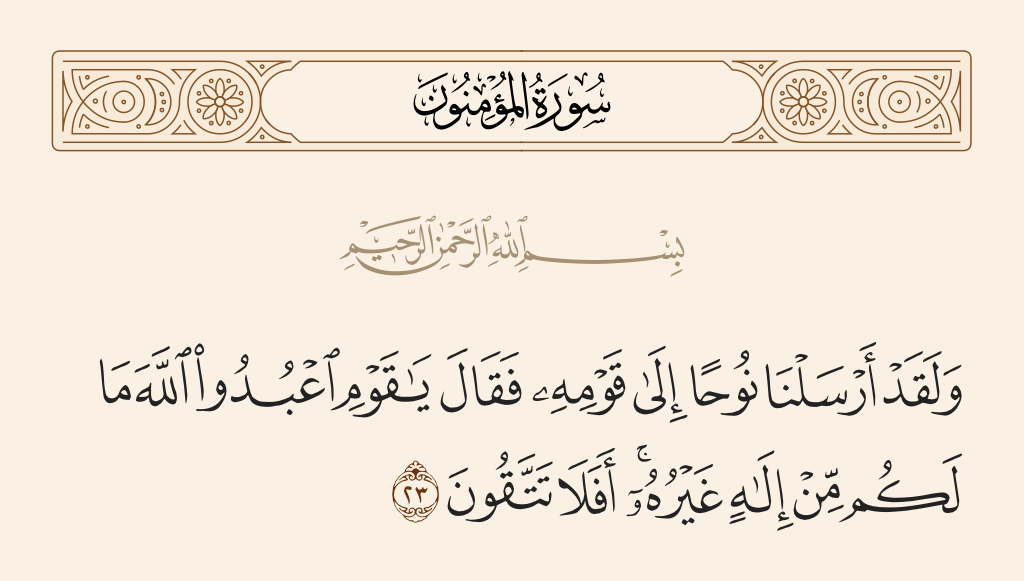 سُورَةُ المُؤْمِنُونَ
بِسْمِ ٱللَّهِ ٱلرَّحْمَٰنِ ٱلرَّحِيمِ
وَلَقَدْ أَرْسَلْنَا نُوحًا إِلَىٰ قَوْمِهِۦ فَقَالَ يَـٰقَوْمِ ٱعْبُدُوا۟ ٱللَّهَ مَا
لَكُم مِّنْ إِلَـٰهٍ غَيْرُهُۥٓ ۚ أَفَلَا تَتَّقُونَ ٢٣